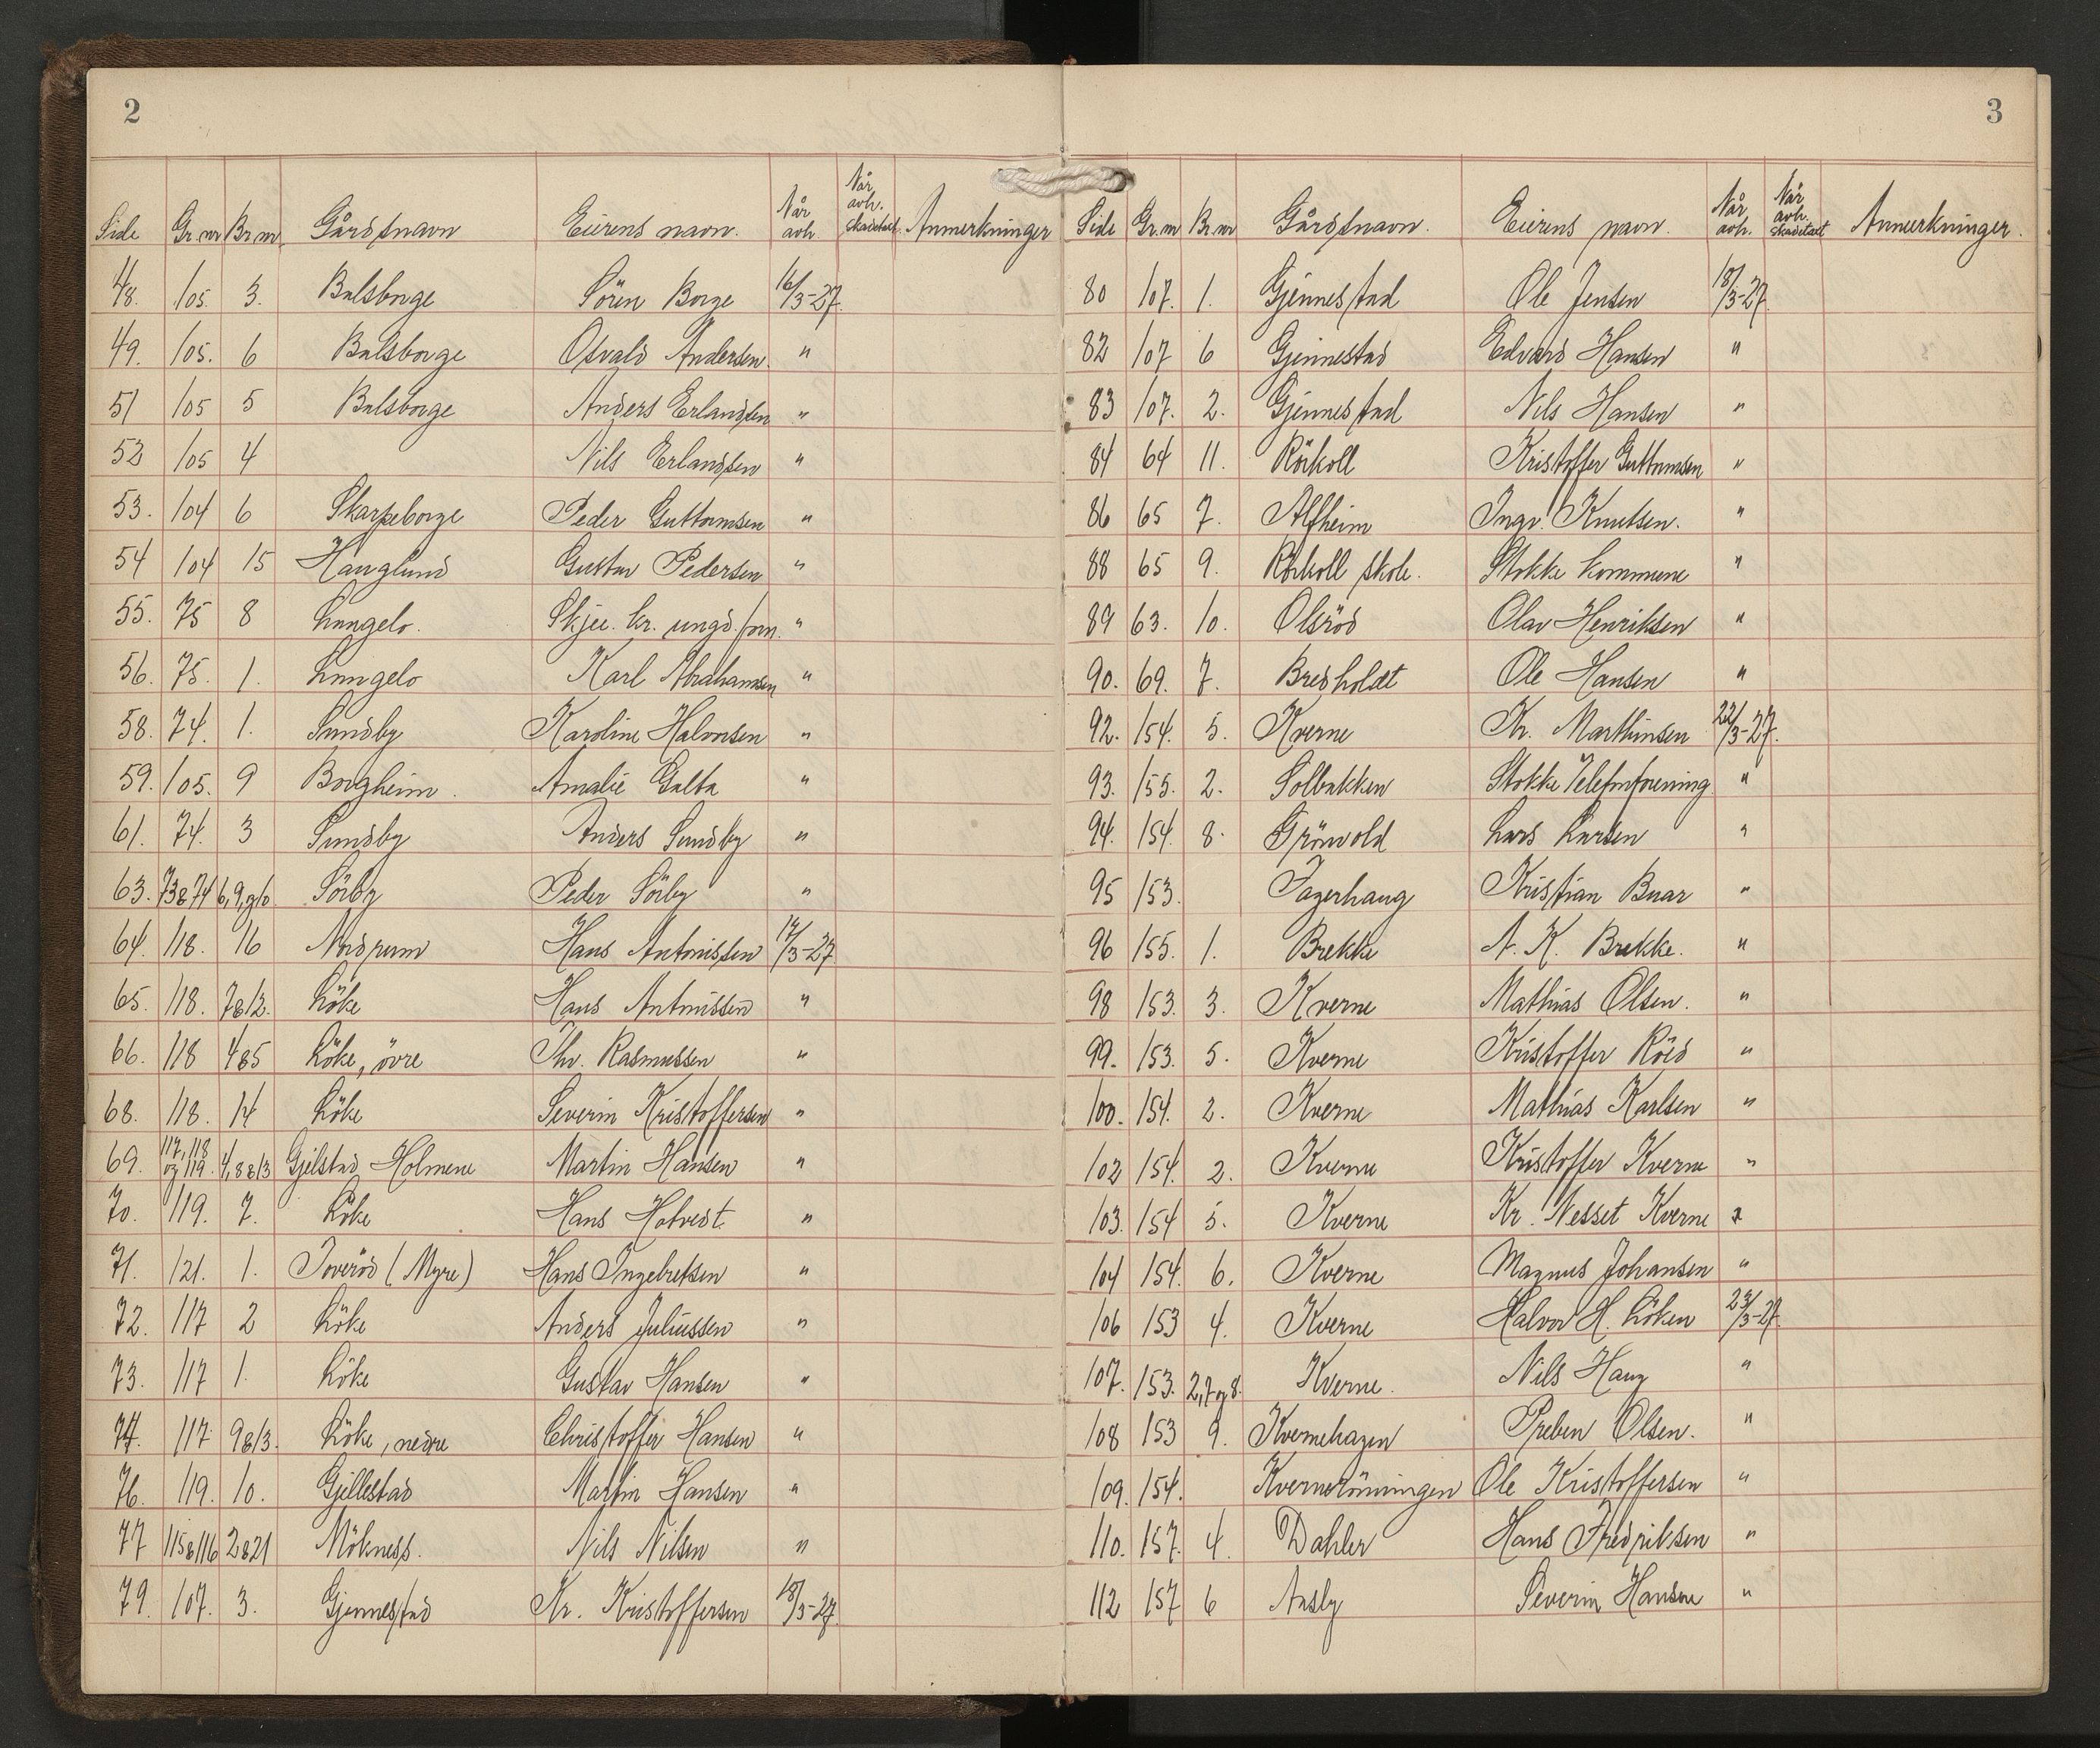 2
Side Gr.nr Br.nr. Gårdsnavn Eierens navn. Når avh. Når avh. skadetakst. Anmerkninger
48. 105. 3. Bulsborge Sören Borge 16/3-27.
49. 105. 6 Bulsborge Osvald Andersen. "
51 105 5 Bulsborge Anders Erlandsen "
52 105 4 Nils Erlandsen "
53. 104 6 Skarpeborge Peder Guttormsen "
54 104 15 Hauglund Gustav Pedersen "
55. 75 8 Lungelo. Skjee. kr. ungd. forn. "
56. 75. 1. Lungelo Karl Abrahamsen "
58. 74. 1. Sundby Karoline Halvorsen "
59. 105. 9 Borgheim. Amalie Galta "
61. 74. 3 Sundby Anders Sundby "
63. 73&74 6,9,og10. Sörby Peder Sörby "
64. 118. 16 Nordrum Hans Antonissen 17/3-27
65. 118. 7&12. Löke Hans Antonissen "
66. 118 4&5 Löke, övre Thv. Rasmussen "
68. 118. 14 Löke Severin Kristoffersen "
69. 117, 118 og 119. 4,8&13 Gjelstad, Holmene Martin Hansen "
70. 119. 7. Löke Hans Hotvedt. "
71. 121. 1. Toveröd (Myre) Hans Ingebretsen "
72. 117 2 Löke Anders Juliussen "
73. 117 1. Löke Gustav Hansen "
74. 117 9&13. Löke, nedre Christoffer Hansen "
76. 119. 10. Gjellestad Martin Hansen "
77 115&116 2&21 Mökness. Nils Nilsen "
79. 107. 3. Gjennestad Kr. Kristoffersen 18/3-27.
3
Side Gr.nr Br.nr Gårdsnavn. Eierens navn. Når avh. Når avh. skadetakst Anmerkninger.
80 107. 1. Gjennestad Ole Jensen 18/3-27.
82 107 6 Gjennestad Edvard Hansen "
83 107. 2. Gjennestad Nils Hansen "
84 64 11. Rörkoll Kristoffer Guttormsen "
86 65 7. Alfheim Ingv. Knutsen. "
88 65 9. Rörkoll skole. Stokke kommune "
89 63. 10. Olsröd Olav Henriksen "
90. 69. 7. Bredholdt Ole Hansen "
92. 154. 5. Kverne Kr. Marthinsen 22/3-27.
93. 155. 2. Solbakken Stokke Telefonforening "
94. 154. 8. Grönvold Lars Larsen "
95 153. Jagerhaug Kristian Buar "
96 155. 1. Brekke A. K. Brekke. "
98 153. 3. Kverne Mathias Olsen. "
99. 153. 5. Kverne Kristoffer Röed "
100. 154. 2. Kverne Mathias Karlsen "
102 154. 2. Kverne Kristoffer Kverne "
103. 154 5. Kverne Kr. Nesset Kverne "
104 154. 6. Kverne Magnus Johansen "
106 153 4. Kverne Halvor H. Löken 23/3-27.
107. 153. 2,7 og 8. Kverne. Nils Haug "
108 153 9. Kvernehagen Preben Olsen. "
109. 154. Kvernerönningen Ole Kristoffersen "
110. 157. 4. Dahler Hans Fredriksen "
112 157 6 Aasby Severin Hansen "